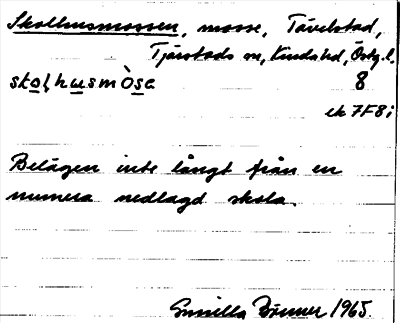 Skolhusmossen, mosse, Tävelstad,
Tjärstads sn, Kinda hd, Östg.l.
skolhusmòsa 8
ek 7F8i
Belägen inte långt från en
numera nedlagd skola.
Gunilla 1965.